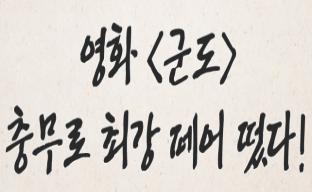 영화 <군도>
충무로 최강 페어 떴다!